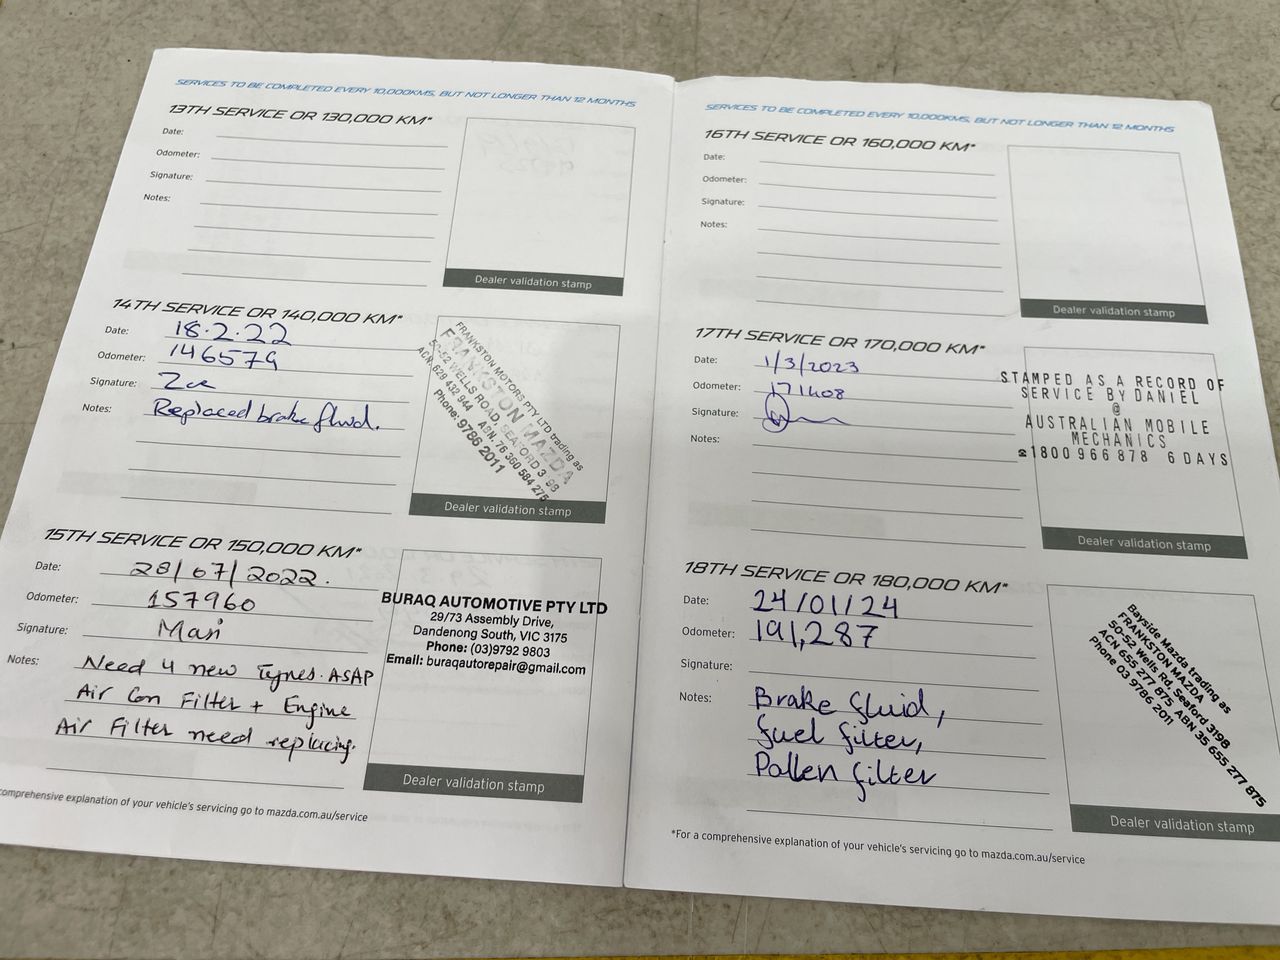 SERVICES TO BE COMPLETED EVERY 10,000KMS, BUT NOT LONGER THAN 12 MONTHS
13TH SERVICE OR 130,000 KM*
Date:
Odometer:
Signature:
Notes:
Dealer validation stamp
14TH SERVICE OR 140,000 KM*
Date: 18.2.22
Odometer: 146579
Signature:
Notes: Replaced brake fluid.
FRANKSTON MOTORS PTY LTD trading as
FRANKSTON MAZDA
50-52 WELLS ROAD, SEAFORD 3198
ACN: 629 432 944 ABN. 76 360 584 275
Phone: 9786 2011
Dealer validation stamp
15TH SERVICE OR 150,000 KM*
Date: 28/07/2022.
Odometer: 157960
Signature:
Notes: Need 4 new Tyres. ASAP
Air Con Filter + Engine
Air Filter need replacing.
BURAQ AUTOMOTIVE PTY LTD
29/73 Assembly Drive,
Dandenong South, VIC 3175
Phone: (03)9792 9803
Email: buraqautorepair@gmail.com
Dealer validation stamp
comprehensive explanation of your vehicle's servicing go to mazda.com.au/service
SERVICES TO BE COMPLETED EVERY 10,000KMS, BUT NOT LONGER THAN 12 MONTHS
16TH SERVICE OR 160,000 KM*
Date:
Odometer:
Signature:
Notes:
Dealer validation stamp
17TH SERVICE OR 170,000 KM*
Date: 1/3/2023
Odometer: 171408
Signature:
Notes:
STAMPED AS A RECORD OF
SERVICE BY DANIEL
@
AUSTRALIAN MOBILE
MECHANICS
☎1800 966 878 6 DAYS
Dealer validation stamp
18TH SERVICE OR 180,000 KM*
Date: 24/01/24
Odometer: 191,287
Signature:
Notes: Brake fluid,
fuel filter,
Pollen filter
Bayside Mazda trading as
FRANKSTON MAZDA
50-52 Wells Rd, Seaford 3198
ACN 655 277 875 ABN 35 655 277 875
Phone 03 9786 2011
Dealer validation stamp
*For a comprehensive explanation of your vehicle's servicing go to mazda.com.au/service